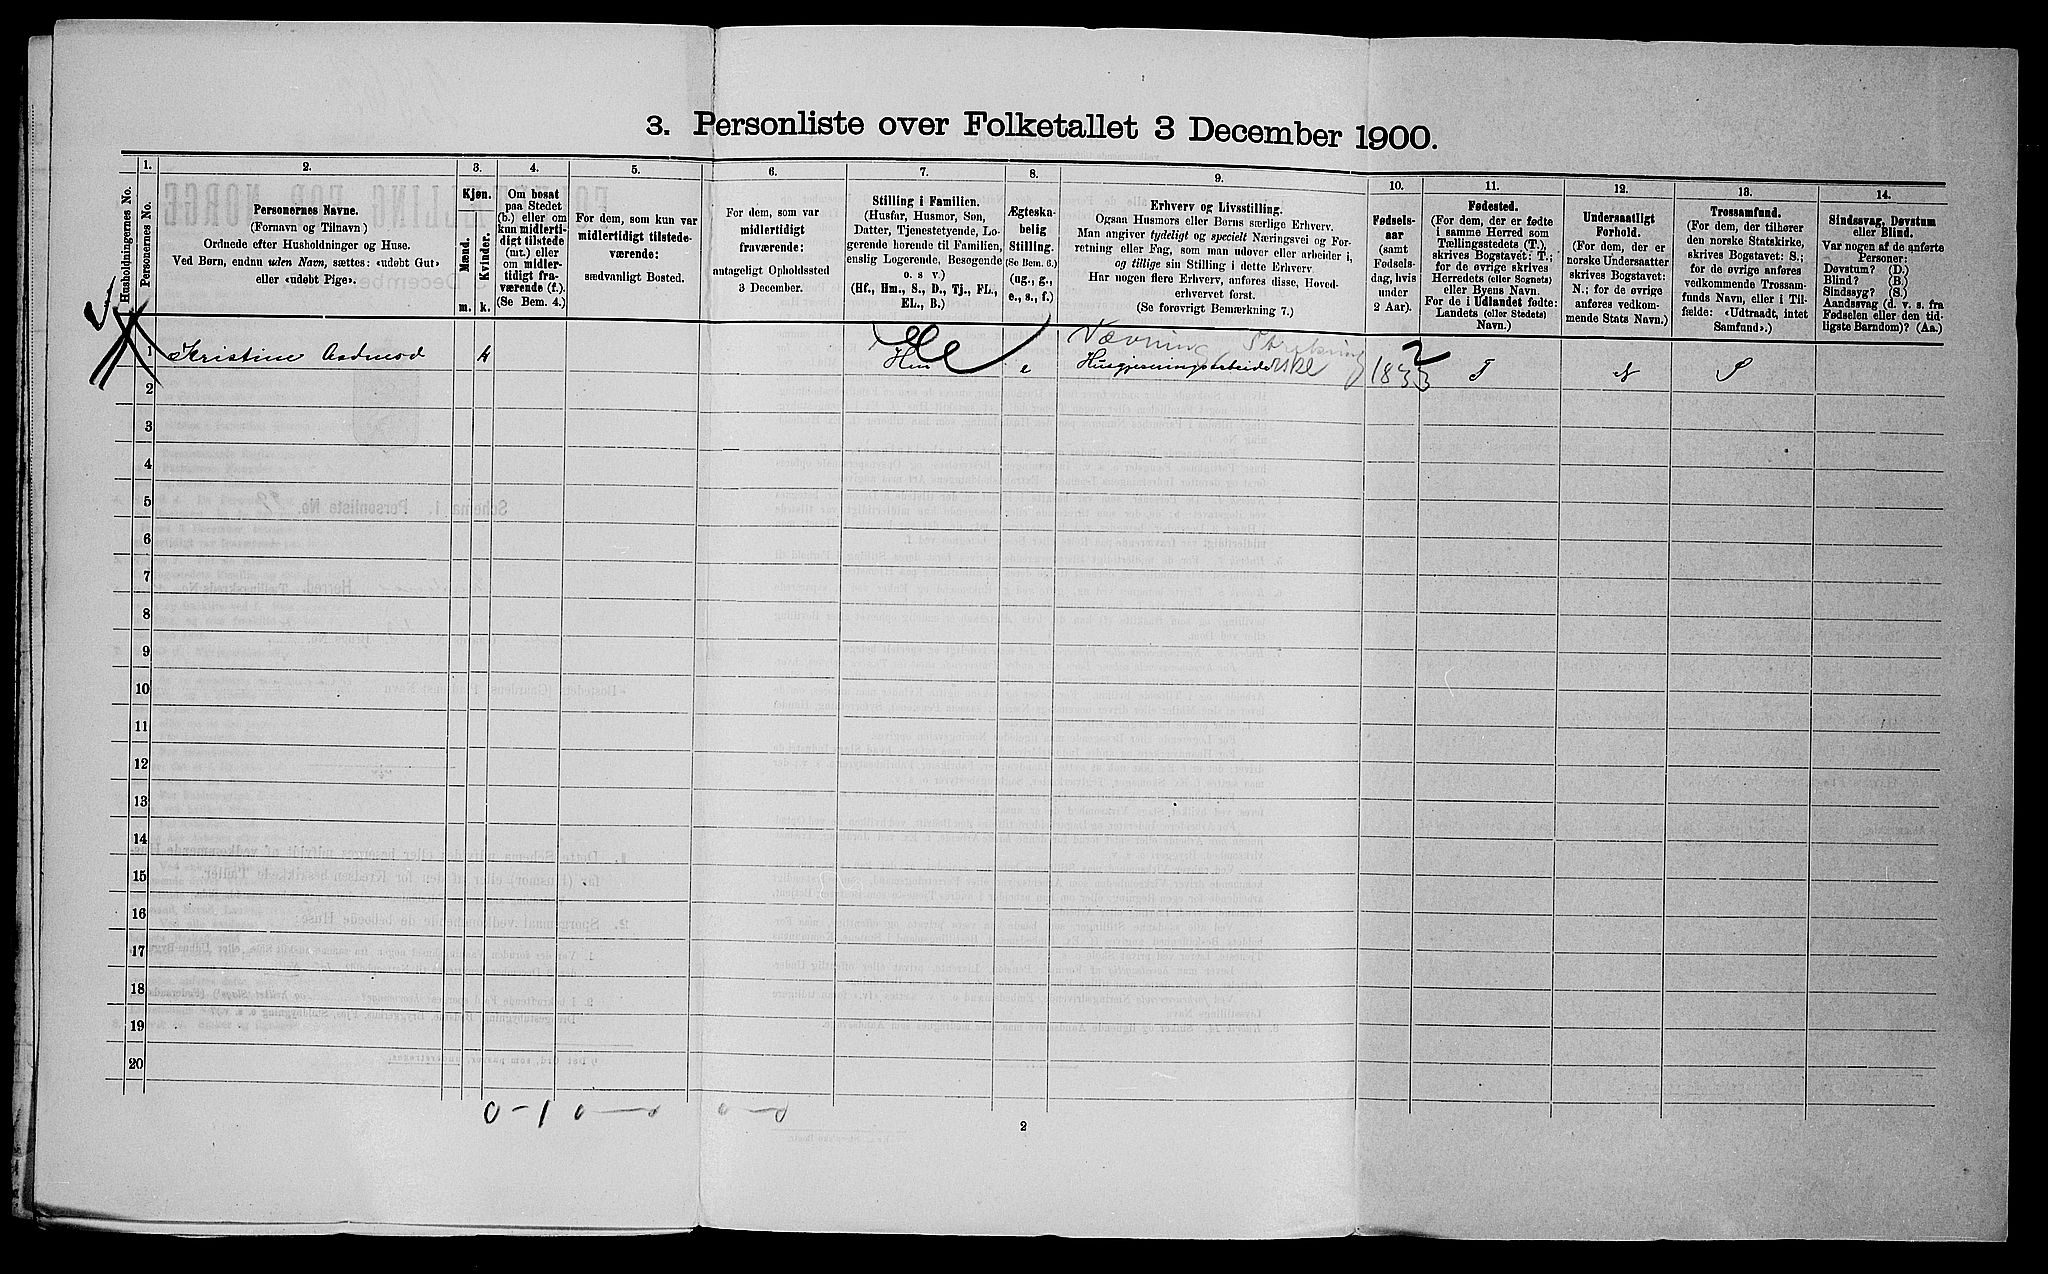 3. Personliste over Folketallet 3 December 1900.
Husholdningernes No.
1.
Personernes No.
2.
Personernes Navne.
(Fornavn og Tilnavn)
Ordnede efter Husholdninger og Huse.
Ved Børn, endnu uden Navn, sættes: «udøbt Gut»
eller «udøbt Pige».
3.
Kjøn.
Mænd.
Kvinder.
m.
k.
4.
Om bosat
paa Stedet
(b.) eller om
kun midler-
tidigt tilstede
(mt.) eller
om midler-
tidigt fra-
værende (f.).
(Se Bem. 4.)
5.
For dem, som kun var
midlertidigt tilstede-
værende:
sædvanligt Bosted.
6.
For dem, som var
midlertidigt
fraværende:
antageligt Opholdssted
3 December.
7.
Stilling i Familien.
(Husfar, Husmor, Søn,
Datter, Tjenestetyende, Lo-
gerende hørende til Familien,
enslig Logerende, Besøgende
o. s v.)
(Hf., Hm., S., D., Tj., FL.,
EL., B.)
8.
Ægteska-
belig
Stilling.
(Se Bem. 6.)
(ug., g.,
e., s., f.)
9.
Erhverv og Livsstilling.
Ogsaa Husmors eller Børns særlige Erhverv.
Man angiver tydeligt og specielt Næringsvei og For-
retning eller Fag, som man udøver eller arbeider i,
og tillige sin Stilling i dette Erhverv.
Har nogen flere Erhverv, anføres disse, Hoved-
erhvervet først.
(Se forøvrigt Bemærkning 7.)
10.
Fødsels-
aar
(samt
Fødsels-
dag, hvis
under
2 Aar).
11.
Fødested.
(For dem, der er fødte
i samme Herred som
Tællingsstedets (T.),
skrives Bogstavet: T.;
for de øvrige skrives
Herredets (eller Sognets)
eller Byens Navn.
For de i Udlandet fødte:
Landets (eller Stedets)
Navn.)
12.
Undersaatligt
Forhold.
(For dem, der er
norske Undersaatter
skrives Bogstavet:
N.; for de øvrige
anføres vedkom-
mende Stats Navn.)
13.
Trossamfund.
(For dem, der tilhører
den norske Statskirke,
skrives Bogstavet: S.;
for de øvrige anføres
vedkommende Trossam-
funds Navn, eller i Til-
fælde: «Udtraadt, intet
Samfund».)
14.
Sindssvag, Døvstum
eller Blind.
Var nogen af de anførte
Personer:
Døvstum? (D.)
Blind? (B.)
Sindssyg? (S.)
Aandssvag (d. v. s. fra
Fødselen eller den tid-
ligste Barndom)? (Aa.)
1 Kristine Aadmod k Hm e Vævning
Husgjerningsarbeide 1832 T N S
2
3
4
5
6
7
8
9
10
11
12
13
14
15
16
17
18
19
20
0-1 0-0 0-0
2